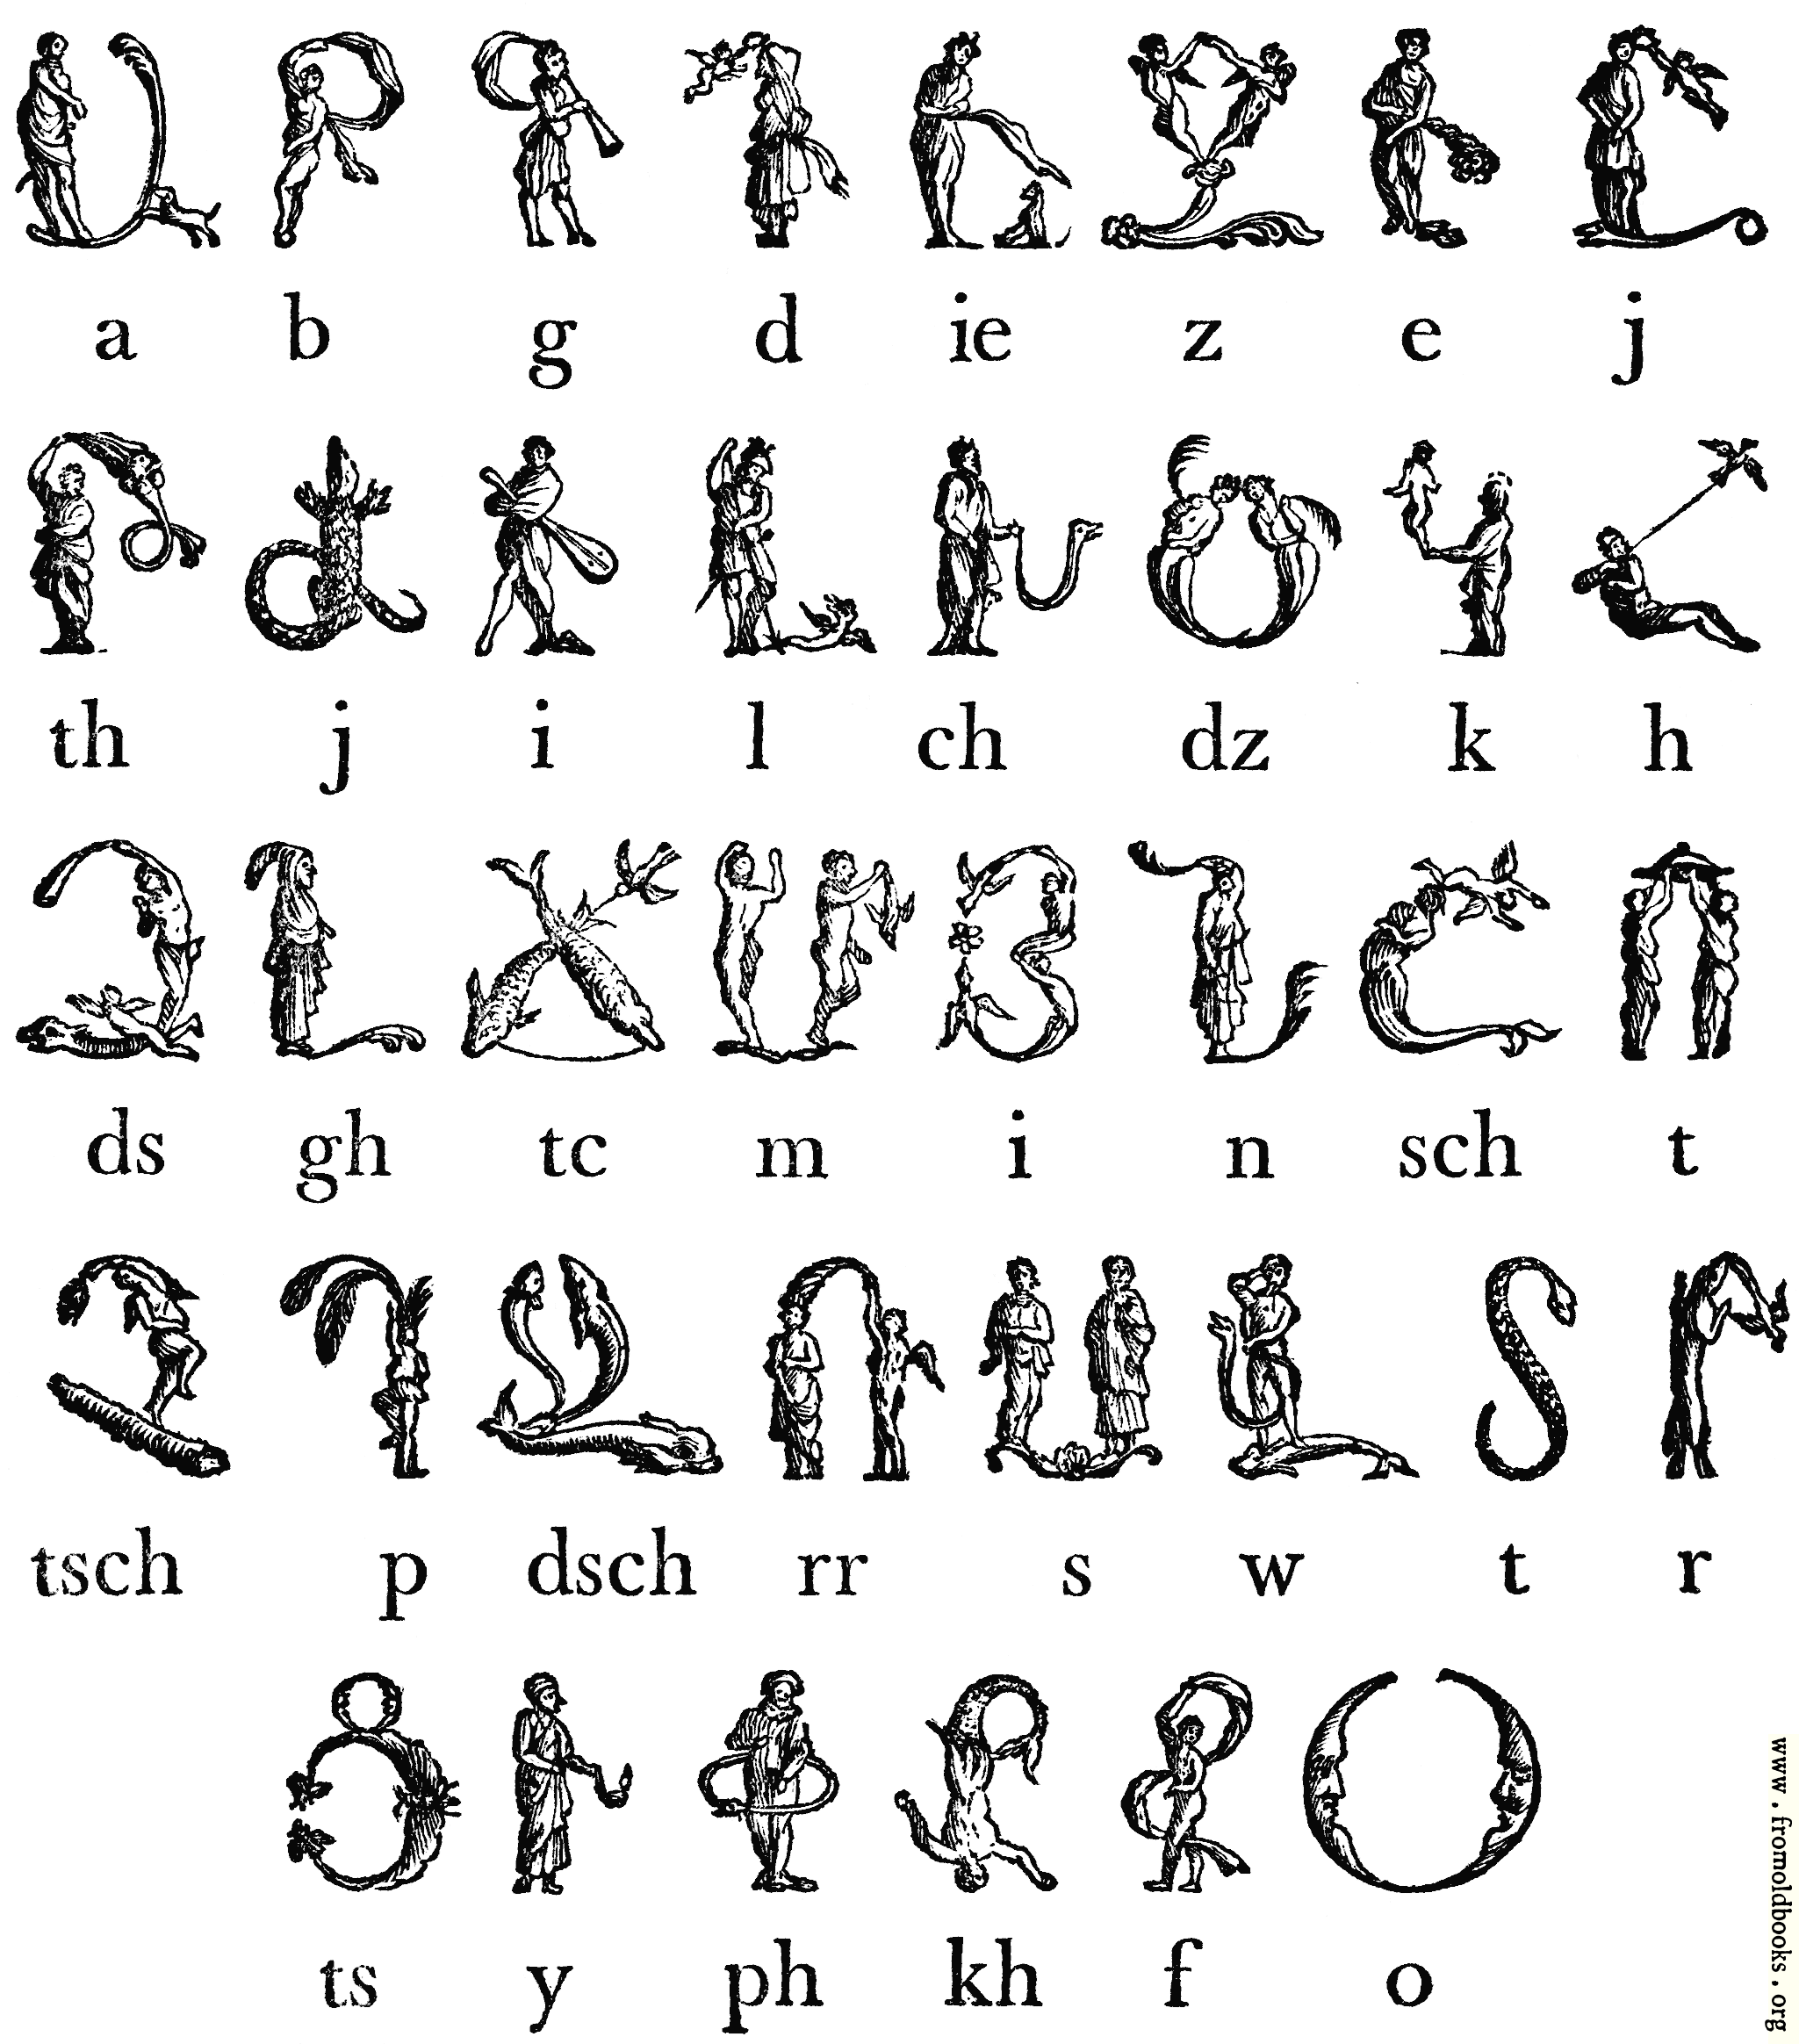 Ա Բ Գ Դ Ե Զ Է Ը
a b g d ie z e j
Թ Ժ Ի Լ Խ Ծ Կ Հ
th j i l ch dz k h
Ձ Ղ Ճ Մ Յ Ն Շ Ո
ds gh tc m i n sch t
Չ Պ Ջ Ռ Ս Վ Տ Ր
tsch p dsch rr s w t r
Ց Ւ Փ Ք Ֆ Օ
ts y ph kh f o
www.fromoldbooks.org